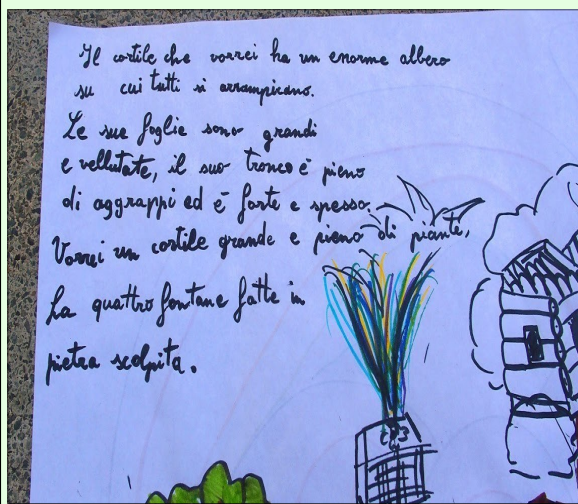 Il cortile che vorrei ha un enorme albero
su cui tutti si arrampicano.
Le sue foglie sono grandi
e vellutate, il suo tronco è pieno
di aggrappi ed è forte e spesso.
Vorrei un cortile grande e pieno di piante,
ha quattro fontane fatte in
pietra scolpita.